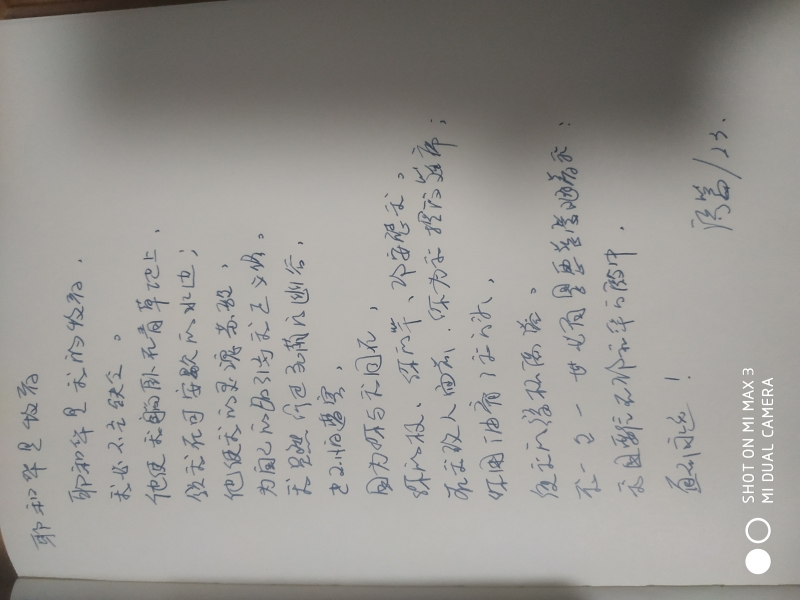 耶和华是牧者
耶和华是我的牧者,
我必不至缺乏。
他使我躺卧在青草地上,
领我在可安歇的水边;
他使我的灵魂苏醒,
为自己的名引导我走义路。
我虽然行过死荫的幽谷,
也不怕遭害,
因为你与我同在,
你的杖、你的竿、都安慰我。
在我敌人面前,你为我摆设筵席;
你用油膏了我的头,
使我的福杯满溢。
我一生一世必有恩惠慈爱随着我;
我且要住在耶和华的殿中,
直到永远!
诗篇/23.
SHOT ON MI MAX 3
MI DUAL CAMERA